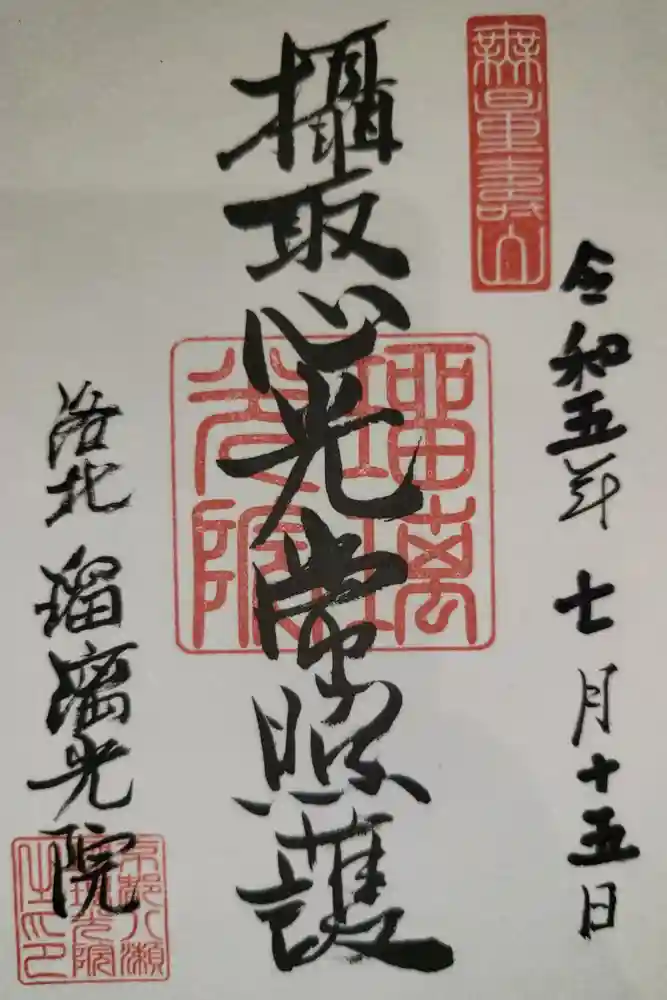 無量壽山
令和五年 七月十五日
攝取心光常照護
瑠璃
光院
洛北 瑠璃光院
京都八瀬
瑠璃光院
之印